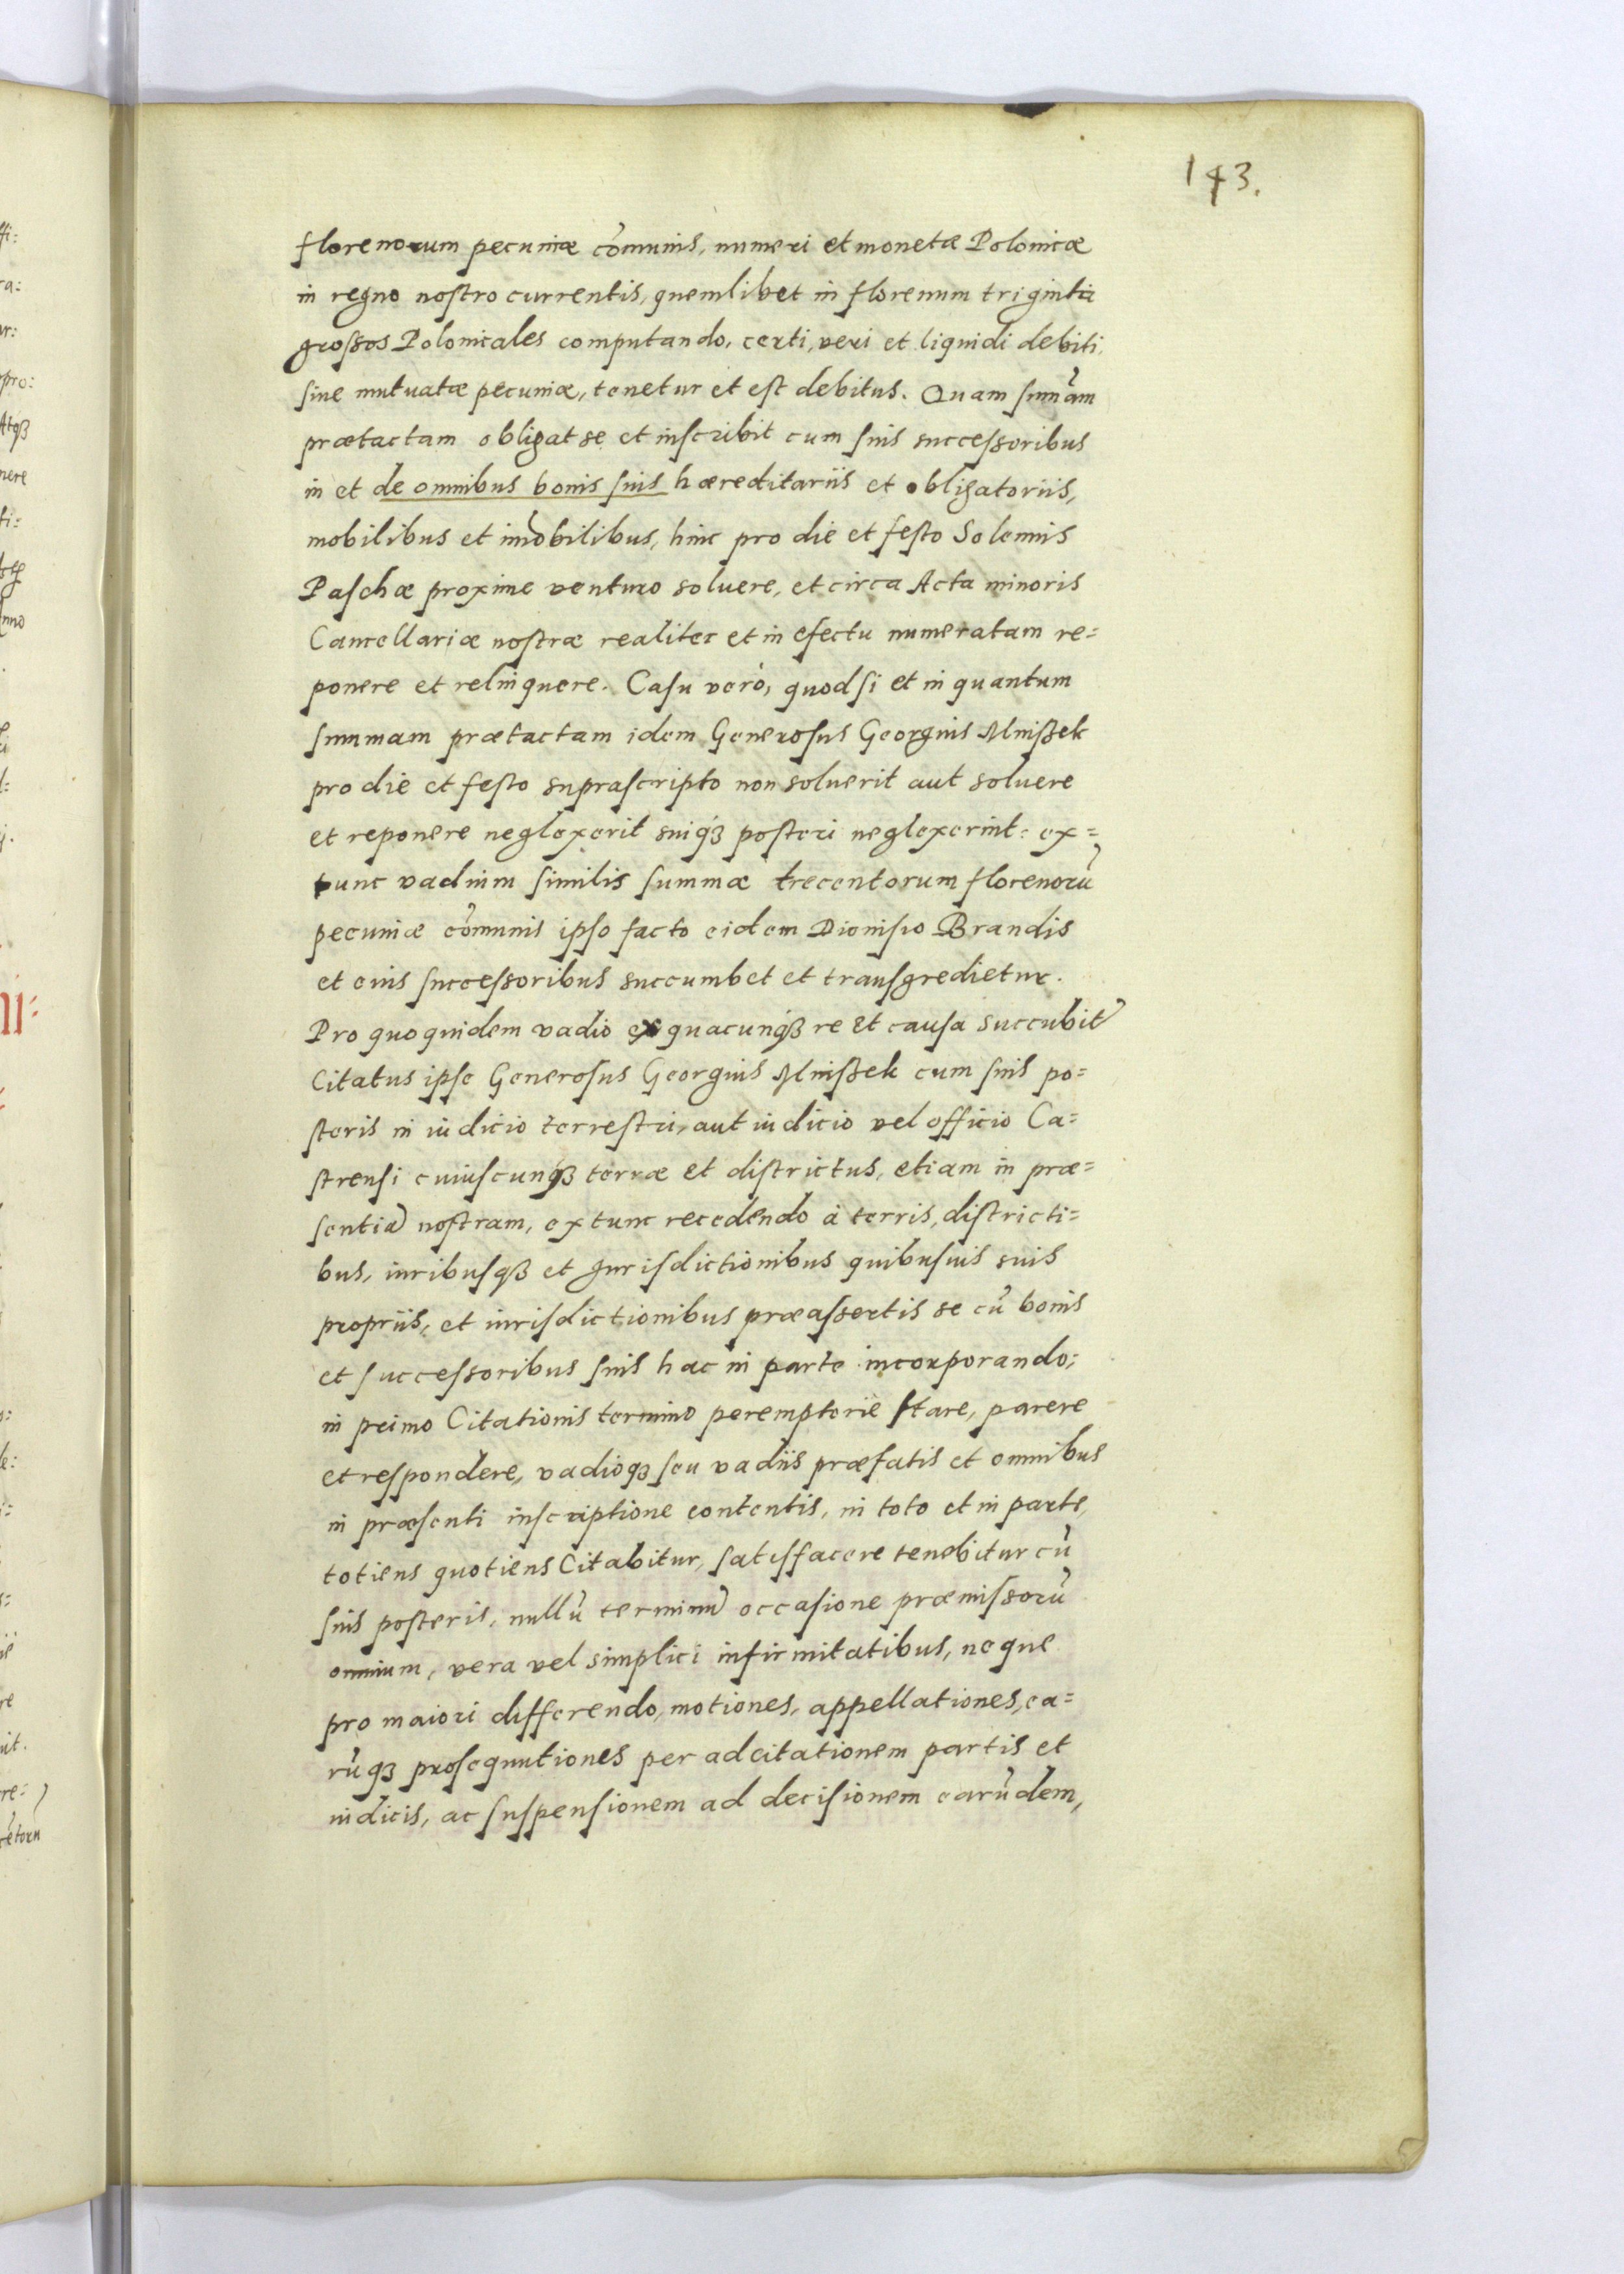 143.
florenorum pecuniæ cõmunis, numeri et monetæ Polonicæ
in regno nostro currentis, quemlibet in florenum triginta
grossos Polonicales computando, certi, veri et liquidi debiti,
siue mutuatæ pecuniæ, tenetur et est debitus. Quam sum̃am
prætactam obligat se et inscribit cum suis successoribus
in et de omnibus bonis suis hæreditariis et obligatoriis,
mobilibus et im̃obilibus, hinc pro die et festo Solennis
Paschæ proxime venturo soluere, et circa Acta minoris
Cancellariæ nostræ realiter et in efectu numeratam re=
ponere et relinquere. Casu verò, quod si et in quantum
summam prætactam idem Generosus Georgius Mnißek
pro die et festo suprascripto non soluerit aut soluere
et reponere neglexerit suiqꝫ posteri neglexerint: ex=
tunc vadium similis summæ trecentorum florenorũ
pecuniæ cõmunis ipso facto eidem Dionisio Brandis
et eius successoribus succumbet et transgredietur.
Pro quoquidem vadio ex quacunqꝫ re et causa succubit̃
Citatus ipse Generosus Georgius Mnißek cum suis po=
steris in iudicio terrestri, aut iudicio vel officio Ca=
strensi cuiuscunqꝫ terræ et districtus, etiam in præ=
sentiã nostram, extunc recedendo à terris, districti=
bus, iuribusqꝫ et Jurisdictionibus quibusuis suis
propriis, et iurisdictionibus præassertis se cũ bonis
et successoribus suis hac in parte incorporando;
in primo Citationis termino peremptorie stare, parere
et respondere, vadioqꝫ seu vadiis præfatis et omnibus
in præsenti inscriptione contentis, in toto et in parte,
totiens quotiens Citabitur, satisfacere tenebitur cũ
suis posteris, nullũ terminũ occasione præmissorũ
omnium, vera vel simplici infirmitatibus, neque
pro maiori differendo, motiones, appellationes, ea=
rũqꝫ prosequutiones per adcitationem partis et
iudicis, ac suspensionem ad decisionem earũdem,